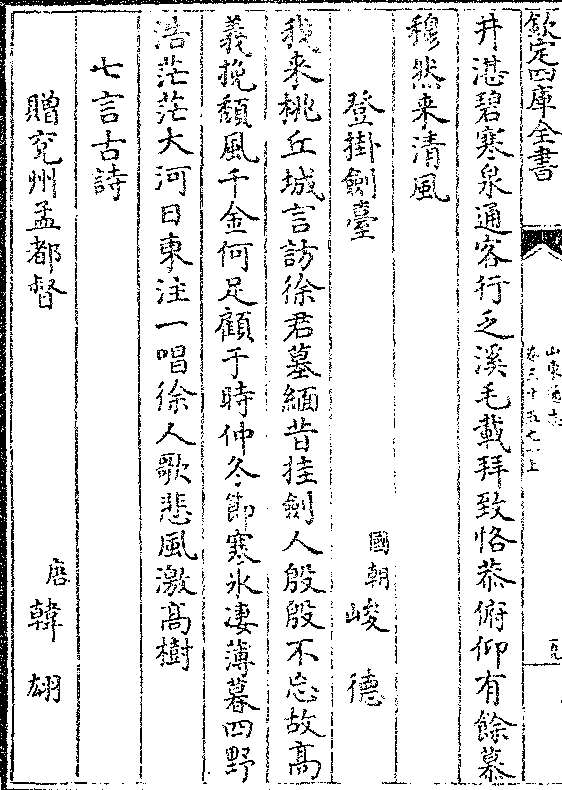 欽定四庫全書
山東通志
卷三十五之一上
井湛碧寒泉通客行乏溪毛載拜致恪恭俯仰有餘慕
穆然来清風
登掛劍臺
國朝 峻德
我来桃丘城言訪徐君墓緬昔挂劍人殷殷不忘故高
義挽頽風千金何足顧于時仲冬節寒氷凄薄暮四野
浩茫茫大河日東注一唱徐人歌悲風激高樹
七言古詩
贈兖州孟都督
唐 韓翃